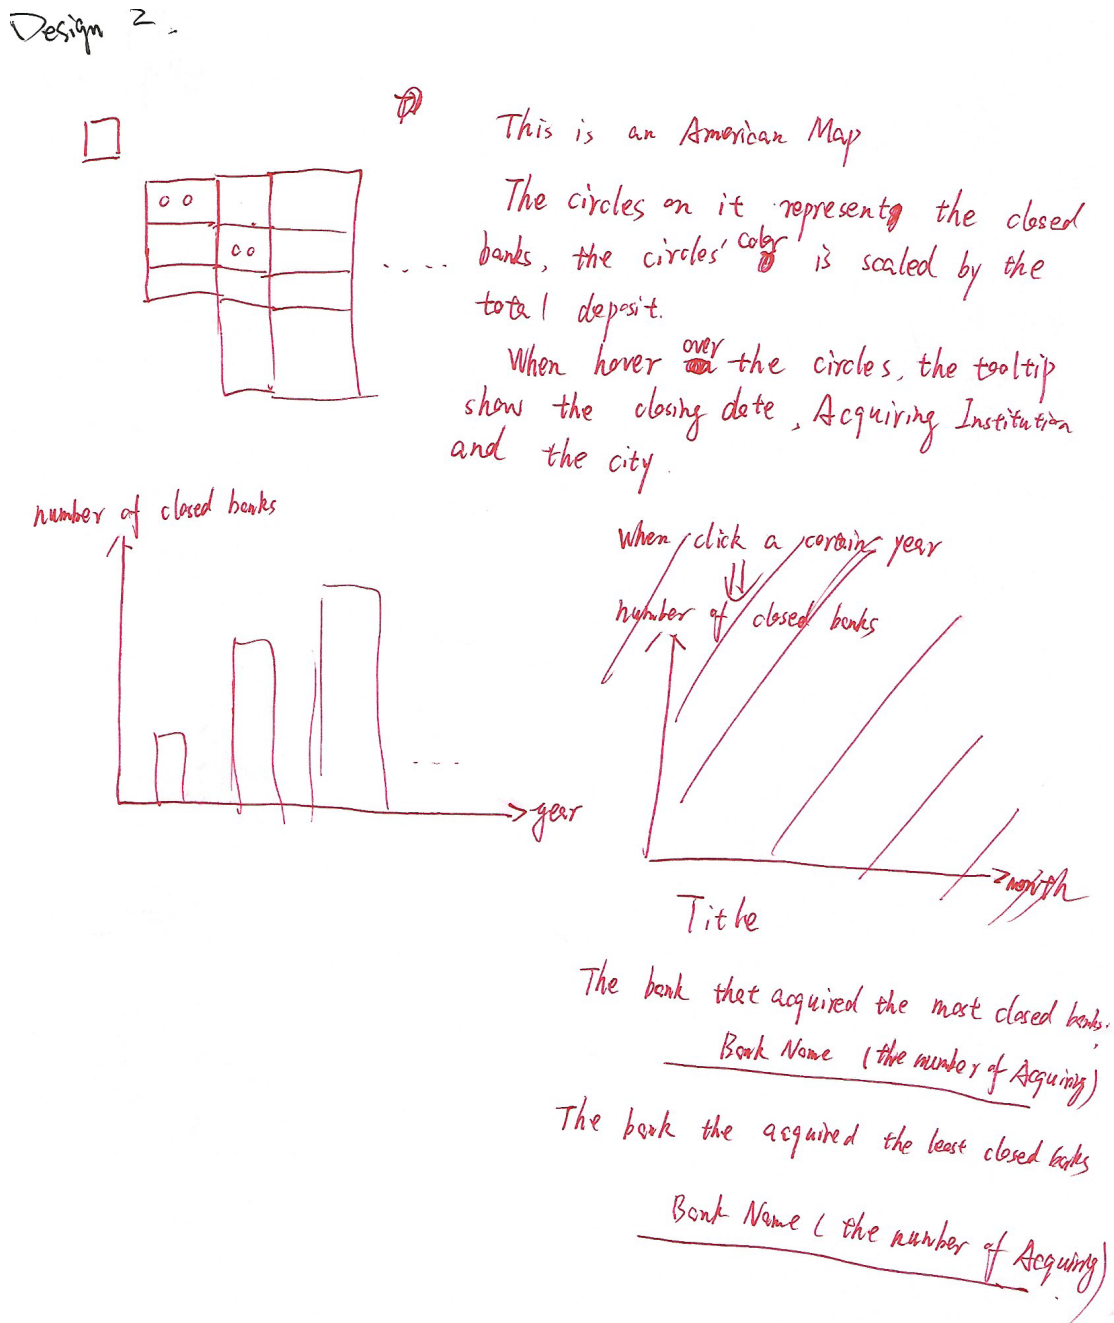 Design 2.
This is an American Map
The circles on it represents the closed
banks, the circles' color is scaled by the
total deposit.
When hover over the circles, the tooltip
show the closing date, Acquiring Institution
and the city.
number of closed banks
year
When click a certain year
number of closed banks
month
Title
The bank that acquired the most closed banks.
Bank Name (the number of Acquiring)
The bank the acquired the least closed banks
Bank Name (the number of Acquiring)